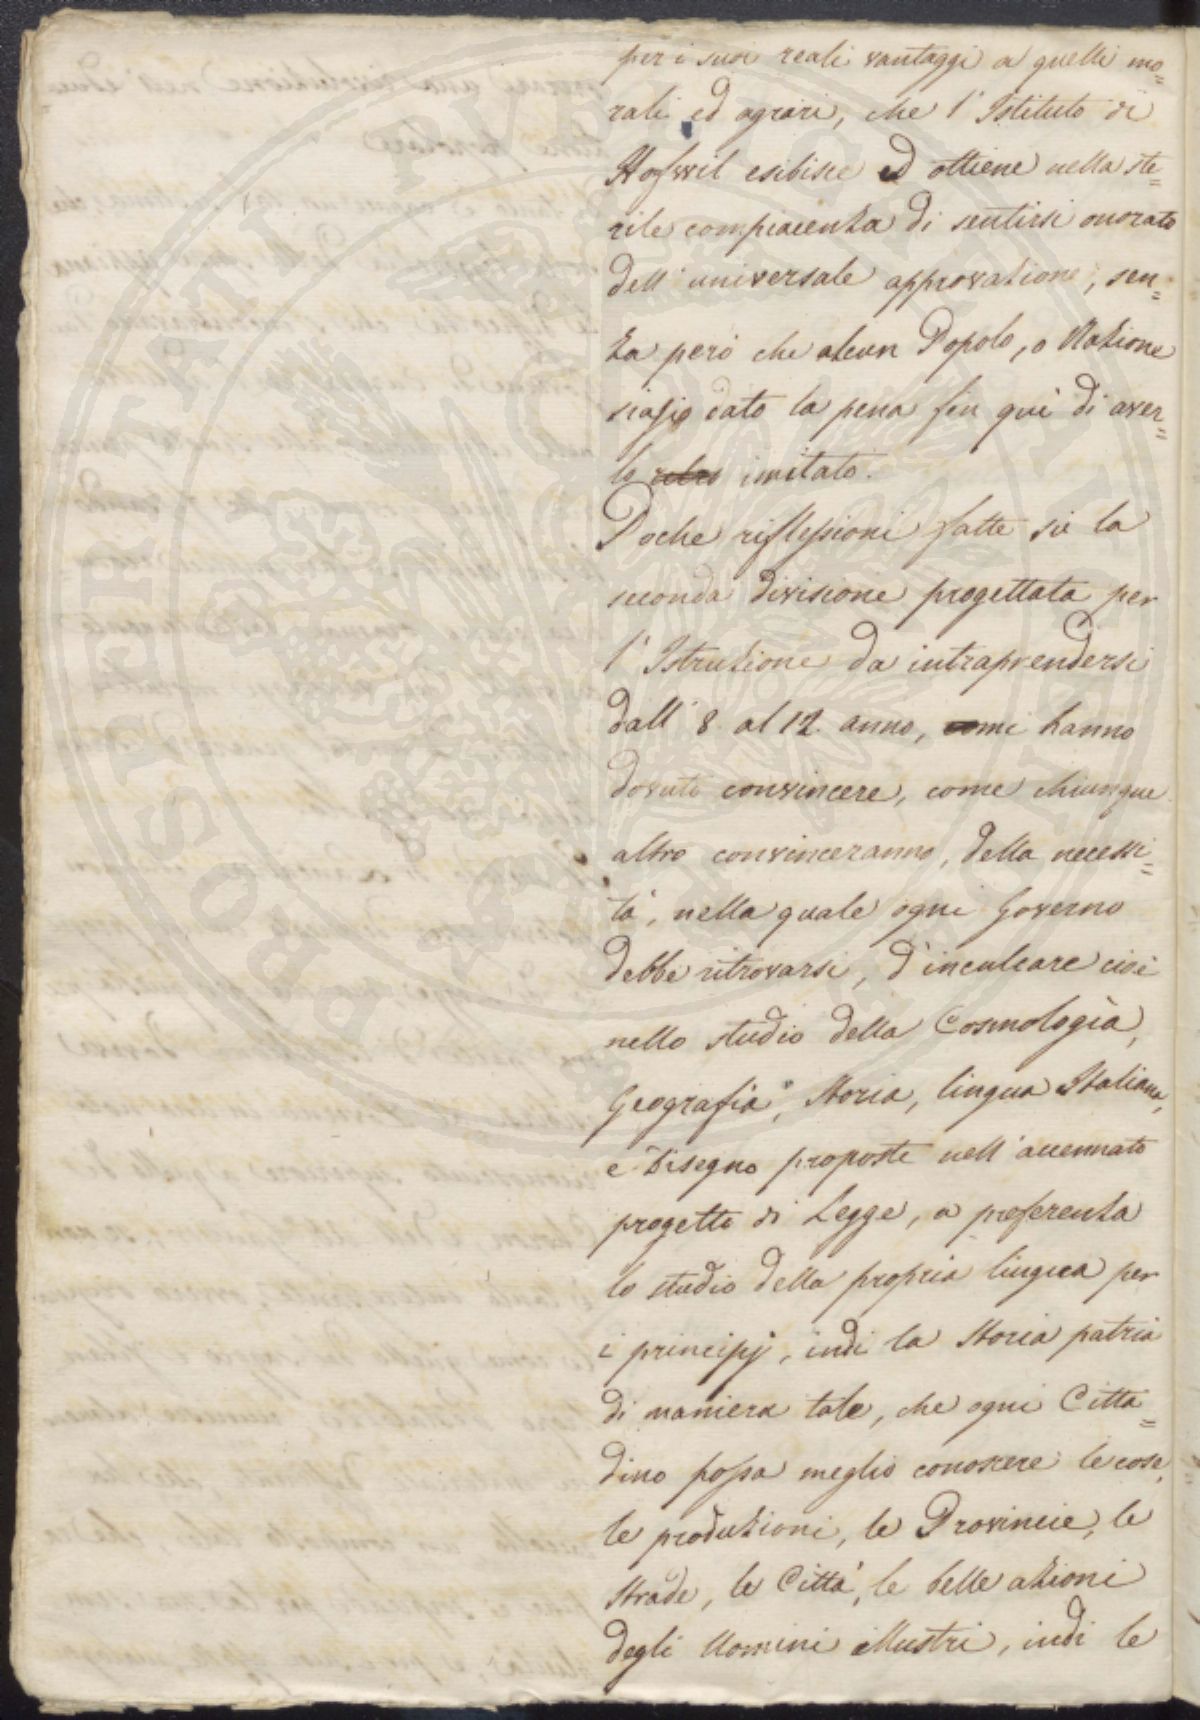 per i suoi reali vantaggi a quelli mo=
rali ed agrari, che l'Istituto di
Hofwil esibisce ed ottiene nella ste=
rile compiacenza di sentirsi onorato
dell'universale approvazione, sen=
za però che alcun Popolo, o Nazione
siasi dato la pena fin quì di aver=
lo imitato.
Poche riflessioni fatte su la
seconda divisione progettata per
l'Istruzione da intraprendersi
dall'8. al 12. anno, mi hanno
dovuto convincere, come chiunque
altro convinceranno, della necessi=
tà, nella quale ogni Governo
debbe ritrovarsi, d'inculcare cioè
nello studio della Cosmologìa,
Geografia, Storia, lingua Italiana,
e Disegno proposte nell'accennato
progetto di Legge, a preferenza
lo studio della propria lingua per
i principj, indi la Storia patria
di maniera tale, che ogni Citta=
dino possa meglio conoscere le cose,
le produzioni, le Provincie, le
Strade, le Città, le belle azioni
degli Uomini illustri, indi le
PROSPERITATI PUBLICAE